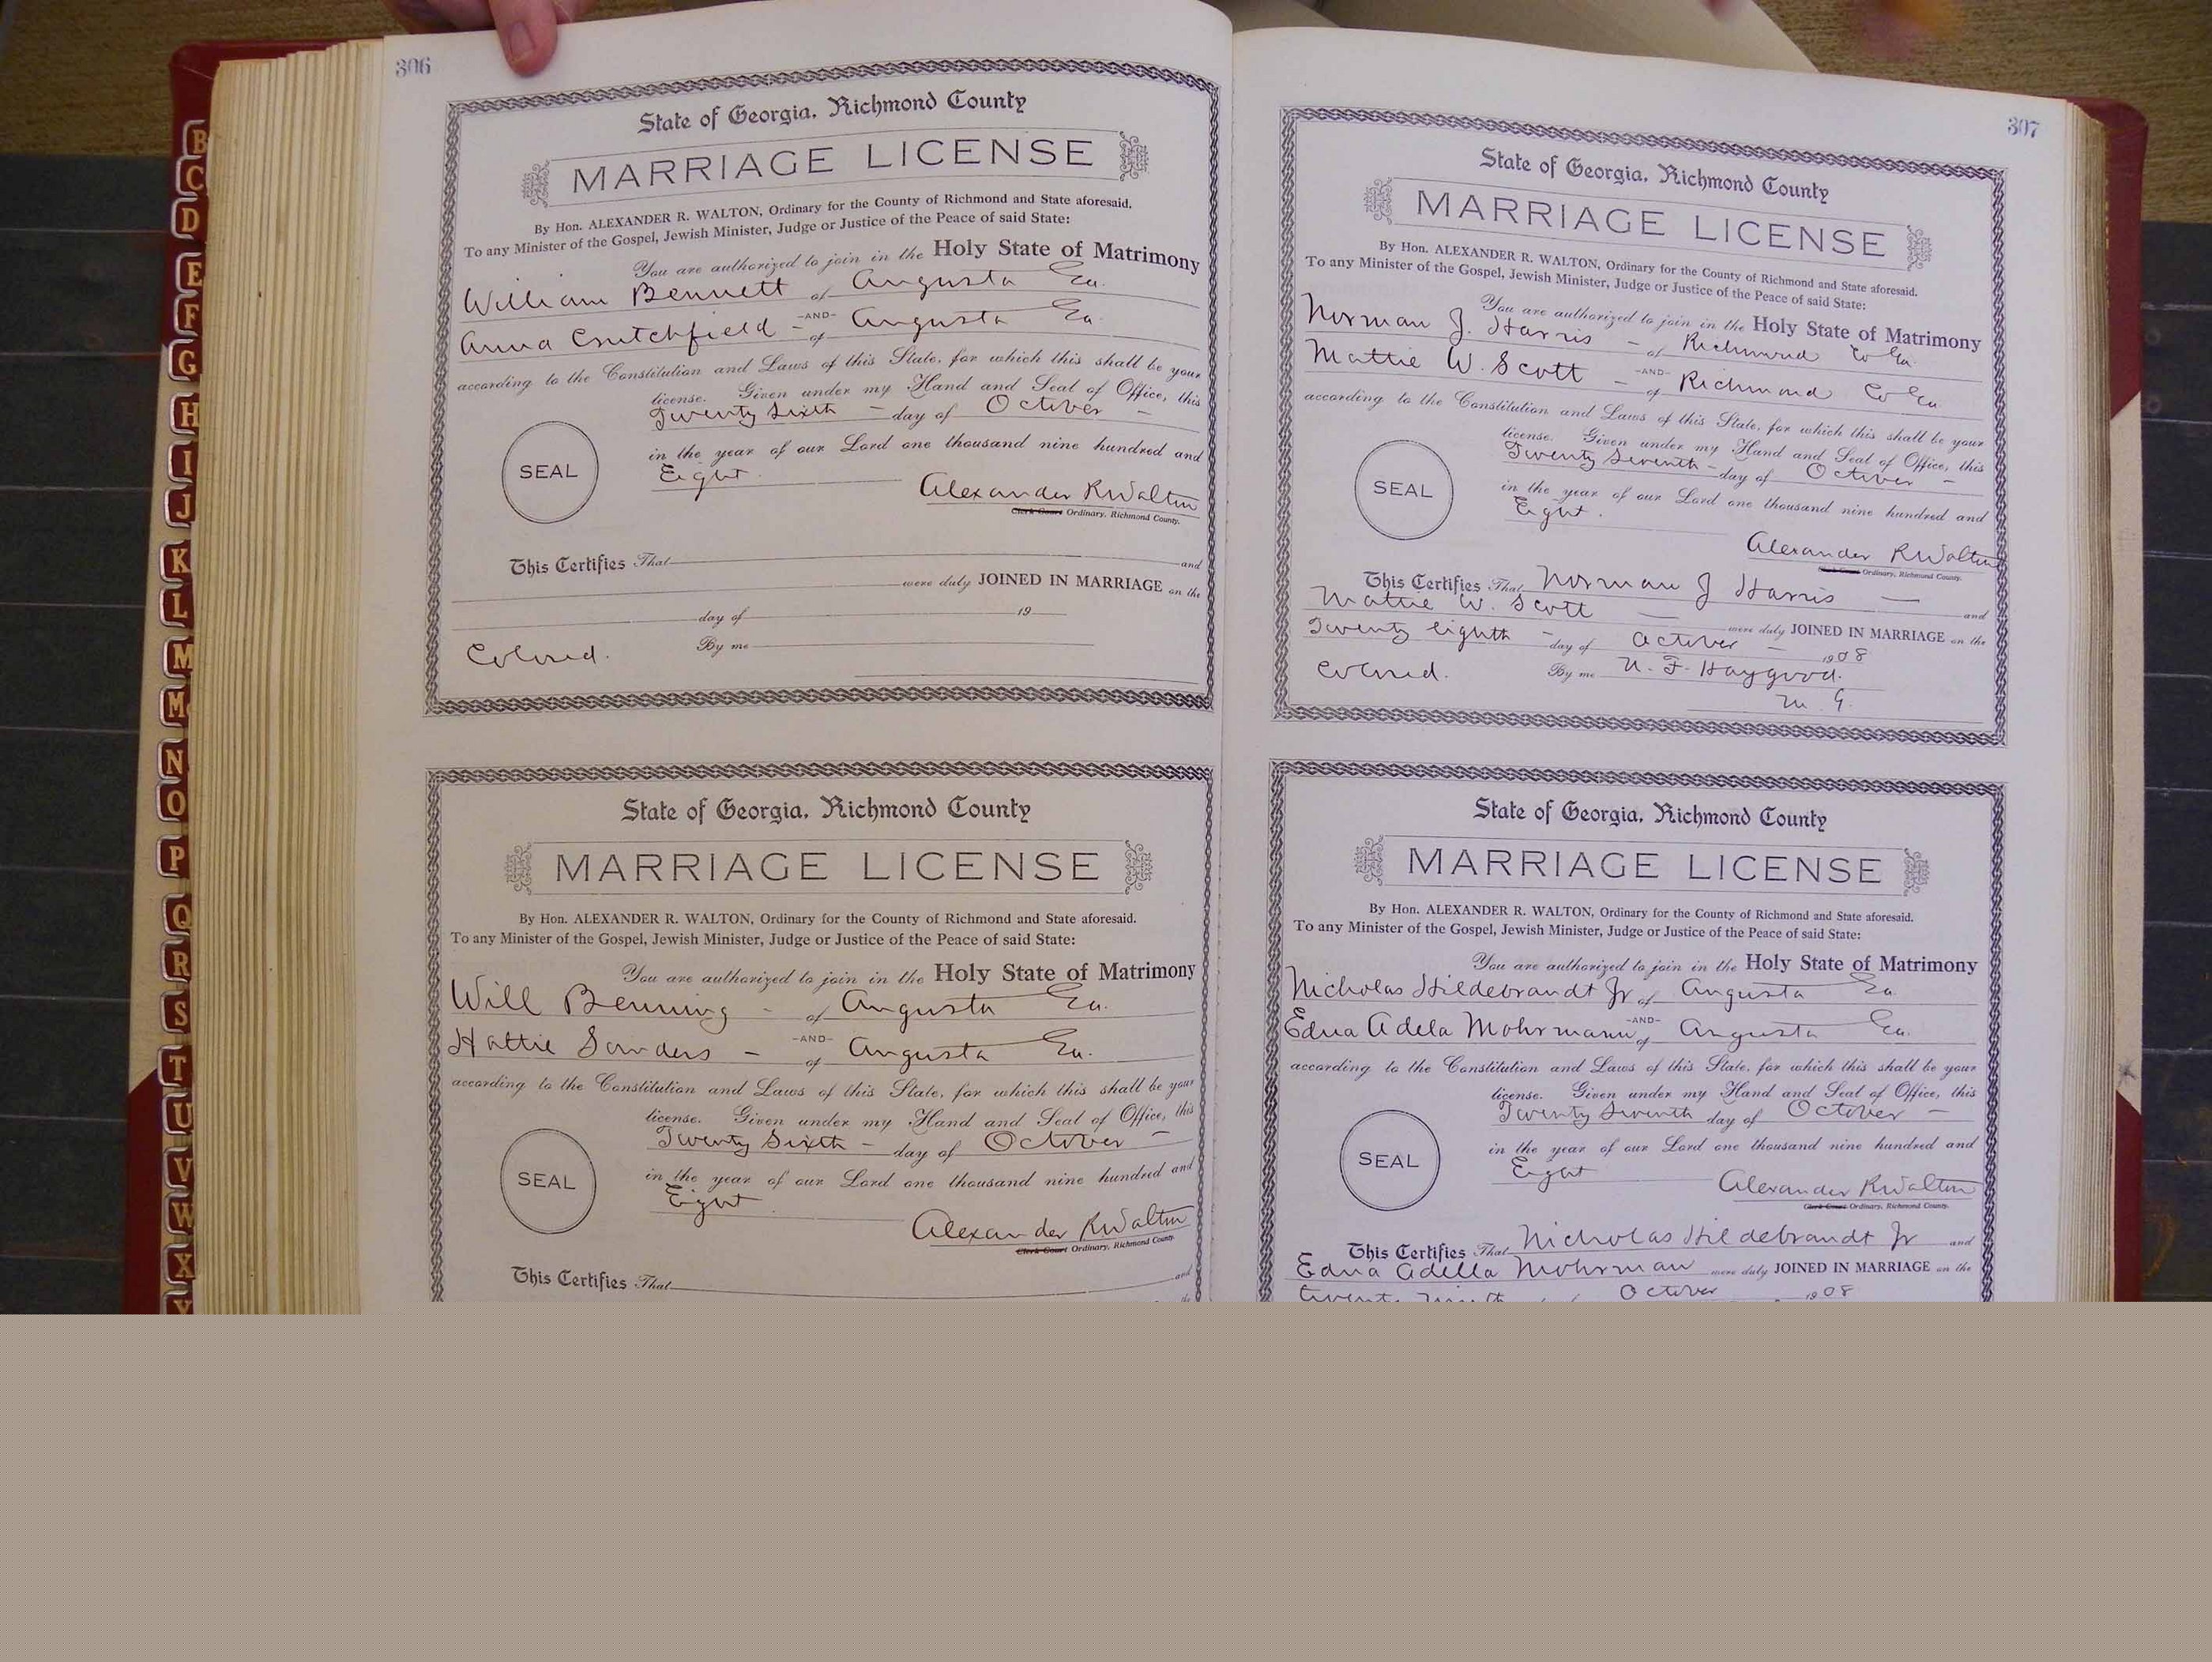 306
State of Georgia, Richmond County
MARRIAGE LICENSE
By Hon. ALEXANDER R. WALTON, Ordinary for the County of Richmond and State aforesaid.
To any Minister of the Gospel, Jewish Minister, Judge or Justice of the Peace of said State:
You are authorized to join in the Holy State of Matrimony
William Bennett of Augusta Ga.
-AND-
Anna Crutchfield - of Augusta Ga
according to the Constitution and Laws of this State, for which this shall be your
license. Given under my Hand and Seal of Office, this
Twenty Sixth - day of October -
in the year of our Lord one thousand nine hundred and
SEAL
Eight.
Alexander R Walton
Clerk Court Ordinary, Richmond County.
This Certifies That and
were duly JOINED IN MARRIAGE on the
day of 19
Colored. By me
State of Georgia, Richmond County
MARRIAGE LICENSE
By Hon. ALEXANDER R. WALTON, Ordinary for the County of Richmond and State aforesaid.
To any Minister of the Gospel, Jewish Minister, Judge or Justice of the Peace of said State:
You are authorized to join in the Holy State of Matrimony
Will Benning - of Augusta Ga.
-AND-
Hattie Sanders - of Augusta Ga.
according to the Constitution and Laws of this State, for which this shall be your
license. Given under my Hand and Seal of Office, this
Twenty Sixth - day of October -
in the year of our Lord one thousand nine hundred and
SEAL
Eight
Alexander R Walton
Clerk Court Ordinary, Richmond County.
This Certifies That and
the
307
State of Georgia, Richmond County
MARRIAGE LICENSE
By Hon. ALEXANDER R. WALTON, Ordinary for the County of Richmond and State aforesaid.
To any Minister of the Gospel, Jewish Minister, Judge or Justice of the Peace of said State:
You are authorized to join in the Holy State of Matrimony
Norman J. Harris - of Richmond Co Ga.
-AND-
Mattie W. Scott - of Richmond Co Ga
according to the Constitution and Laws of this State, for which this shall be your
license. Given under my Hand and Seal of Office, this
Twenty Seventh - day of October -
in the year of our Lord one thousand nine hundred and
SEAL
Eight.
Alexander R Walton
Clerk Court Ordinary, Richmond County.
This Certifies That Norman J Harris - and
Mattie W. Scott - were duly JOINED IN MARRIAGE on the
Twenty eighth - day of October - 1908
Colored. By me N. F. Haygood.
M. G.
State of Georgia, Richmond County
MARRIAGE LICENSE
By Hon. ALEXANDER R. WALTON, Ordinary for the County of Richmond and State aforesaid.
To any Minister of the Gospel, Jewish Minister, Judge or Justice of the Peace of said State:
You are authorized to join in the Holy State of Matrimony
Nicholas Hildebrandt Jr of Augusta Ga
-AND-
Edna Adela Mohrmann of Augusta Ga.
according to the Constitution and Laws of this State, for which this shall be your
license. Given under my Hand and Seal of Office, this
Twenty Seventh day of October -
in the year of our Lord one thousand nine hundred and
SEAL
Eight
Alexander R Walton
Clerk Court Ordinary, Richmond County.
This Certifies That Nicholas Hildebrandt Jr and
Edna Adella Mohrman were duly JOINED IN MARRIAGE on the
twenty October 1908
B
C
D
E
F
G
H
I
J
K
L
M
M
N
O
P
Q
R
S
T
U
V
W
X
Y